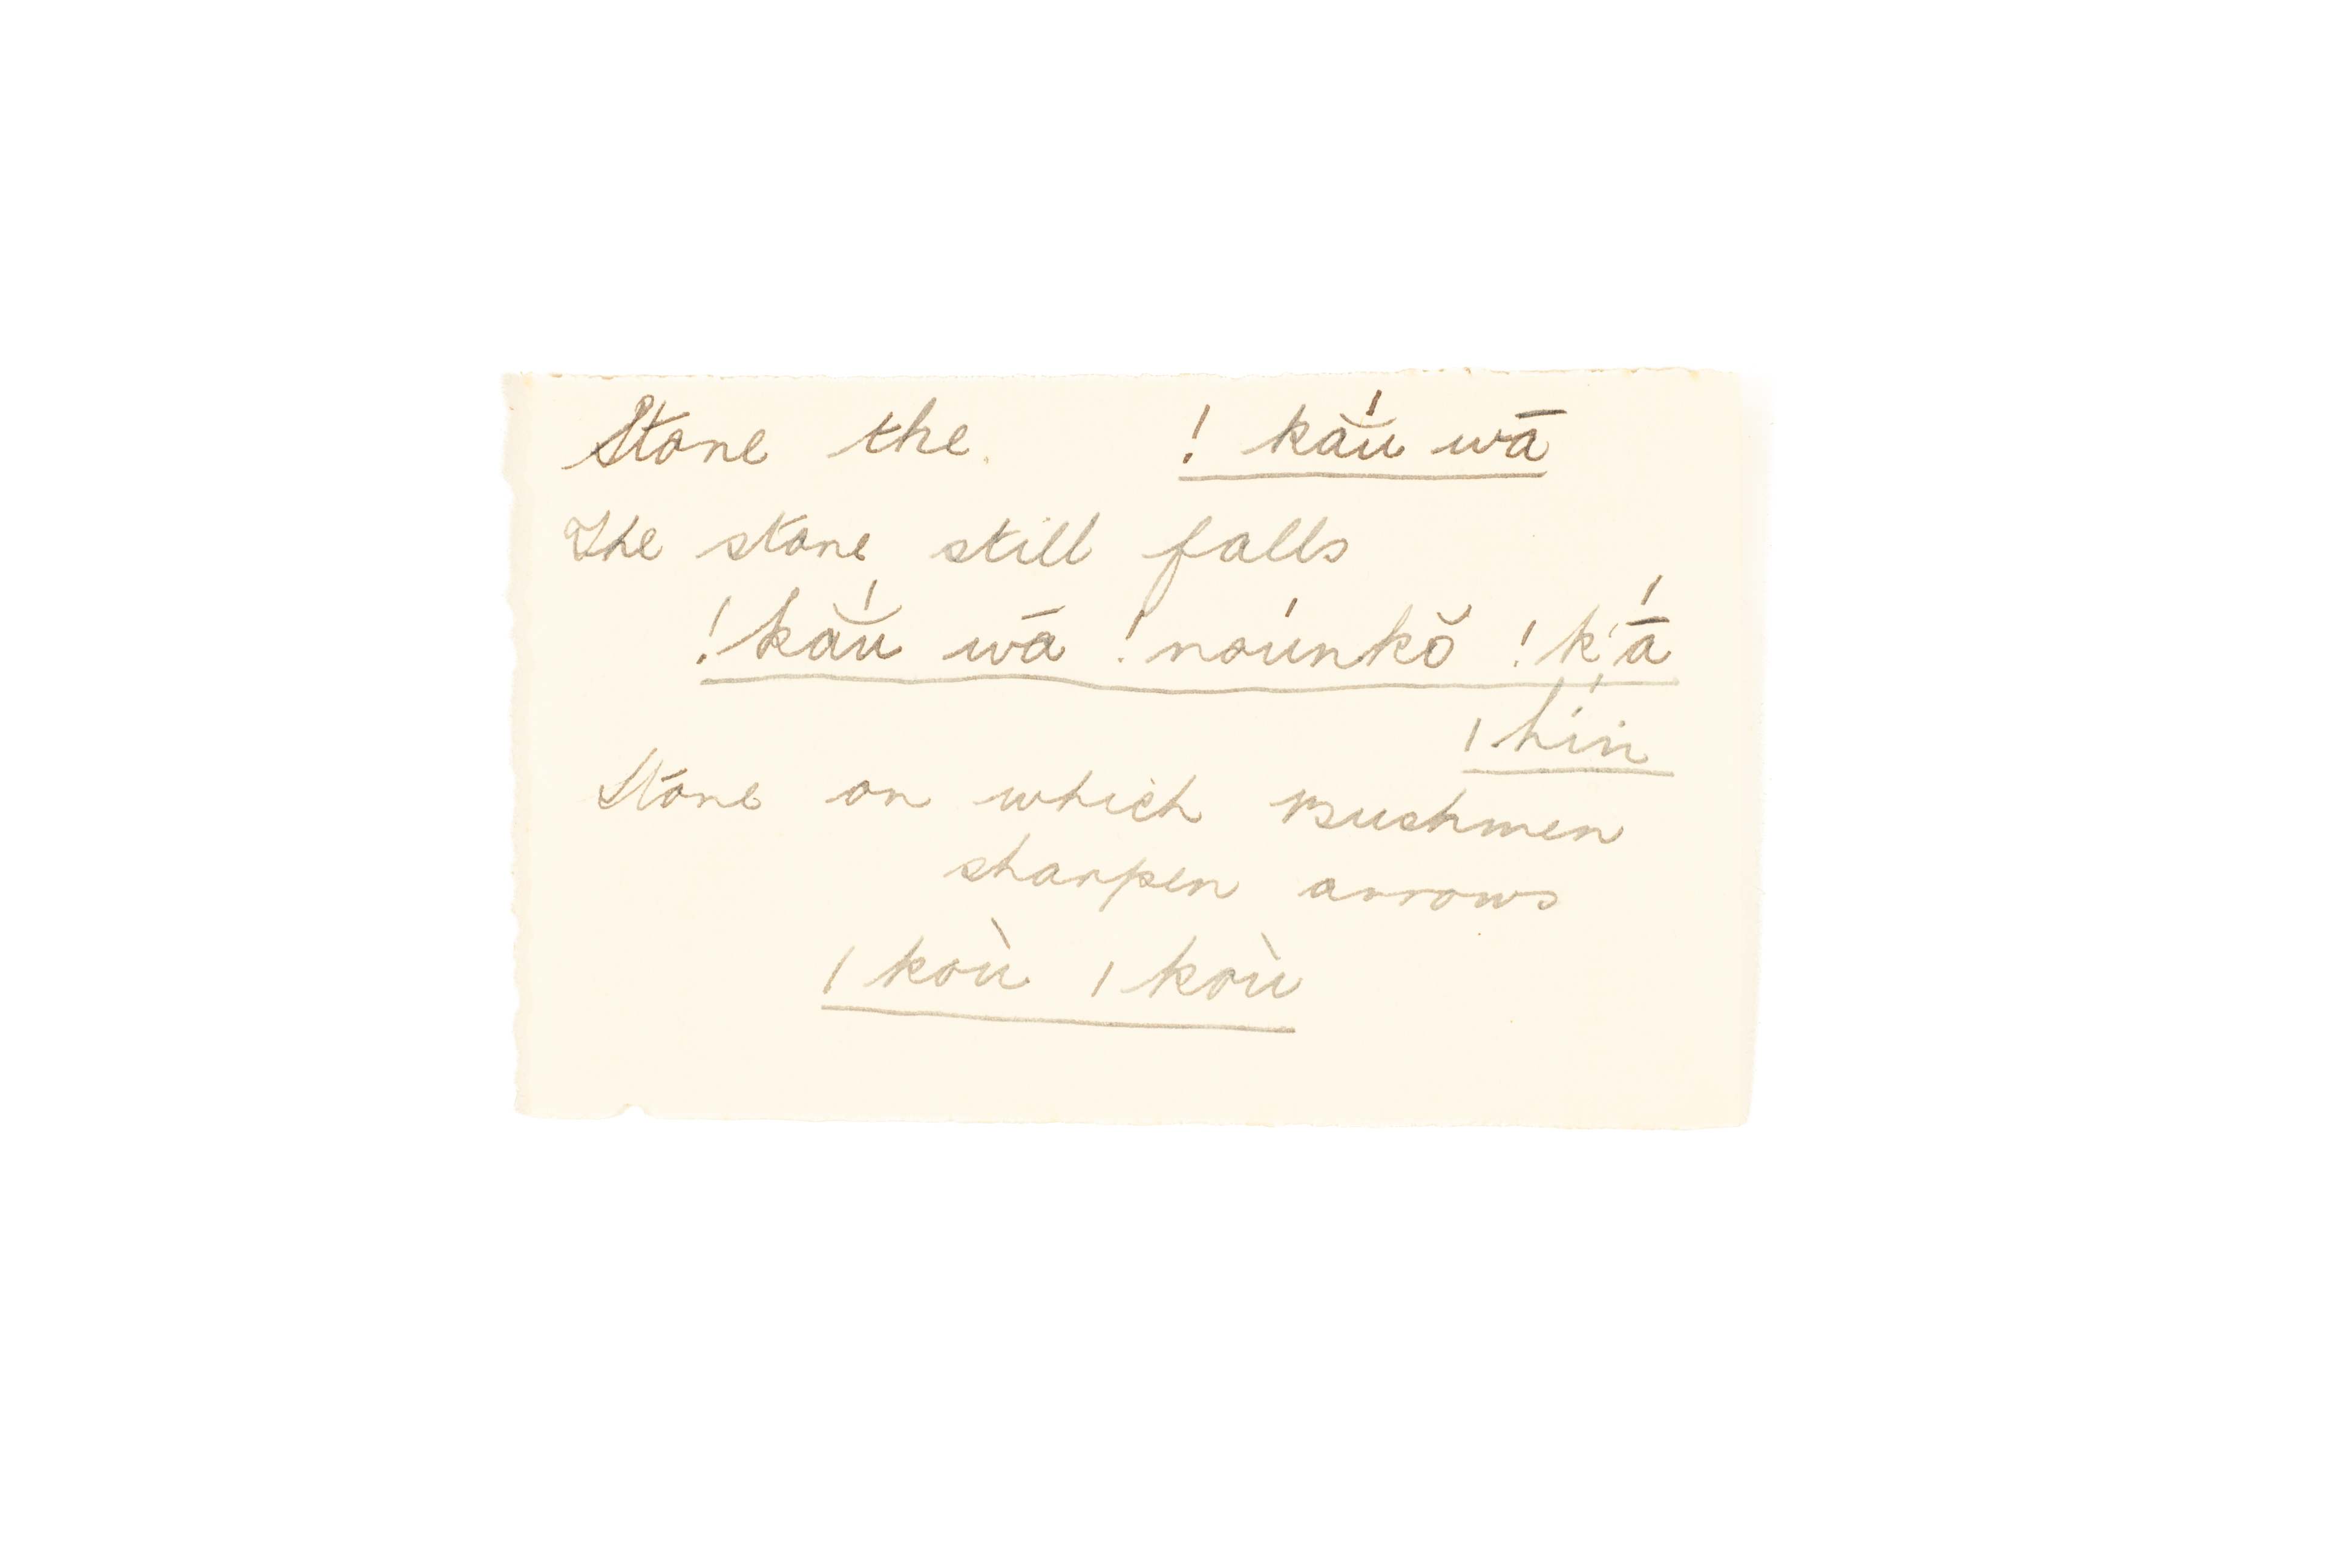 Stone the. ! kắu wā
The stone still falls
! kắu wā ! noúnkŏ ! k'ā́
| hín
Stone on which Bushmen
sharpen arrows
| koù | koù